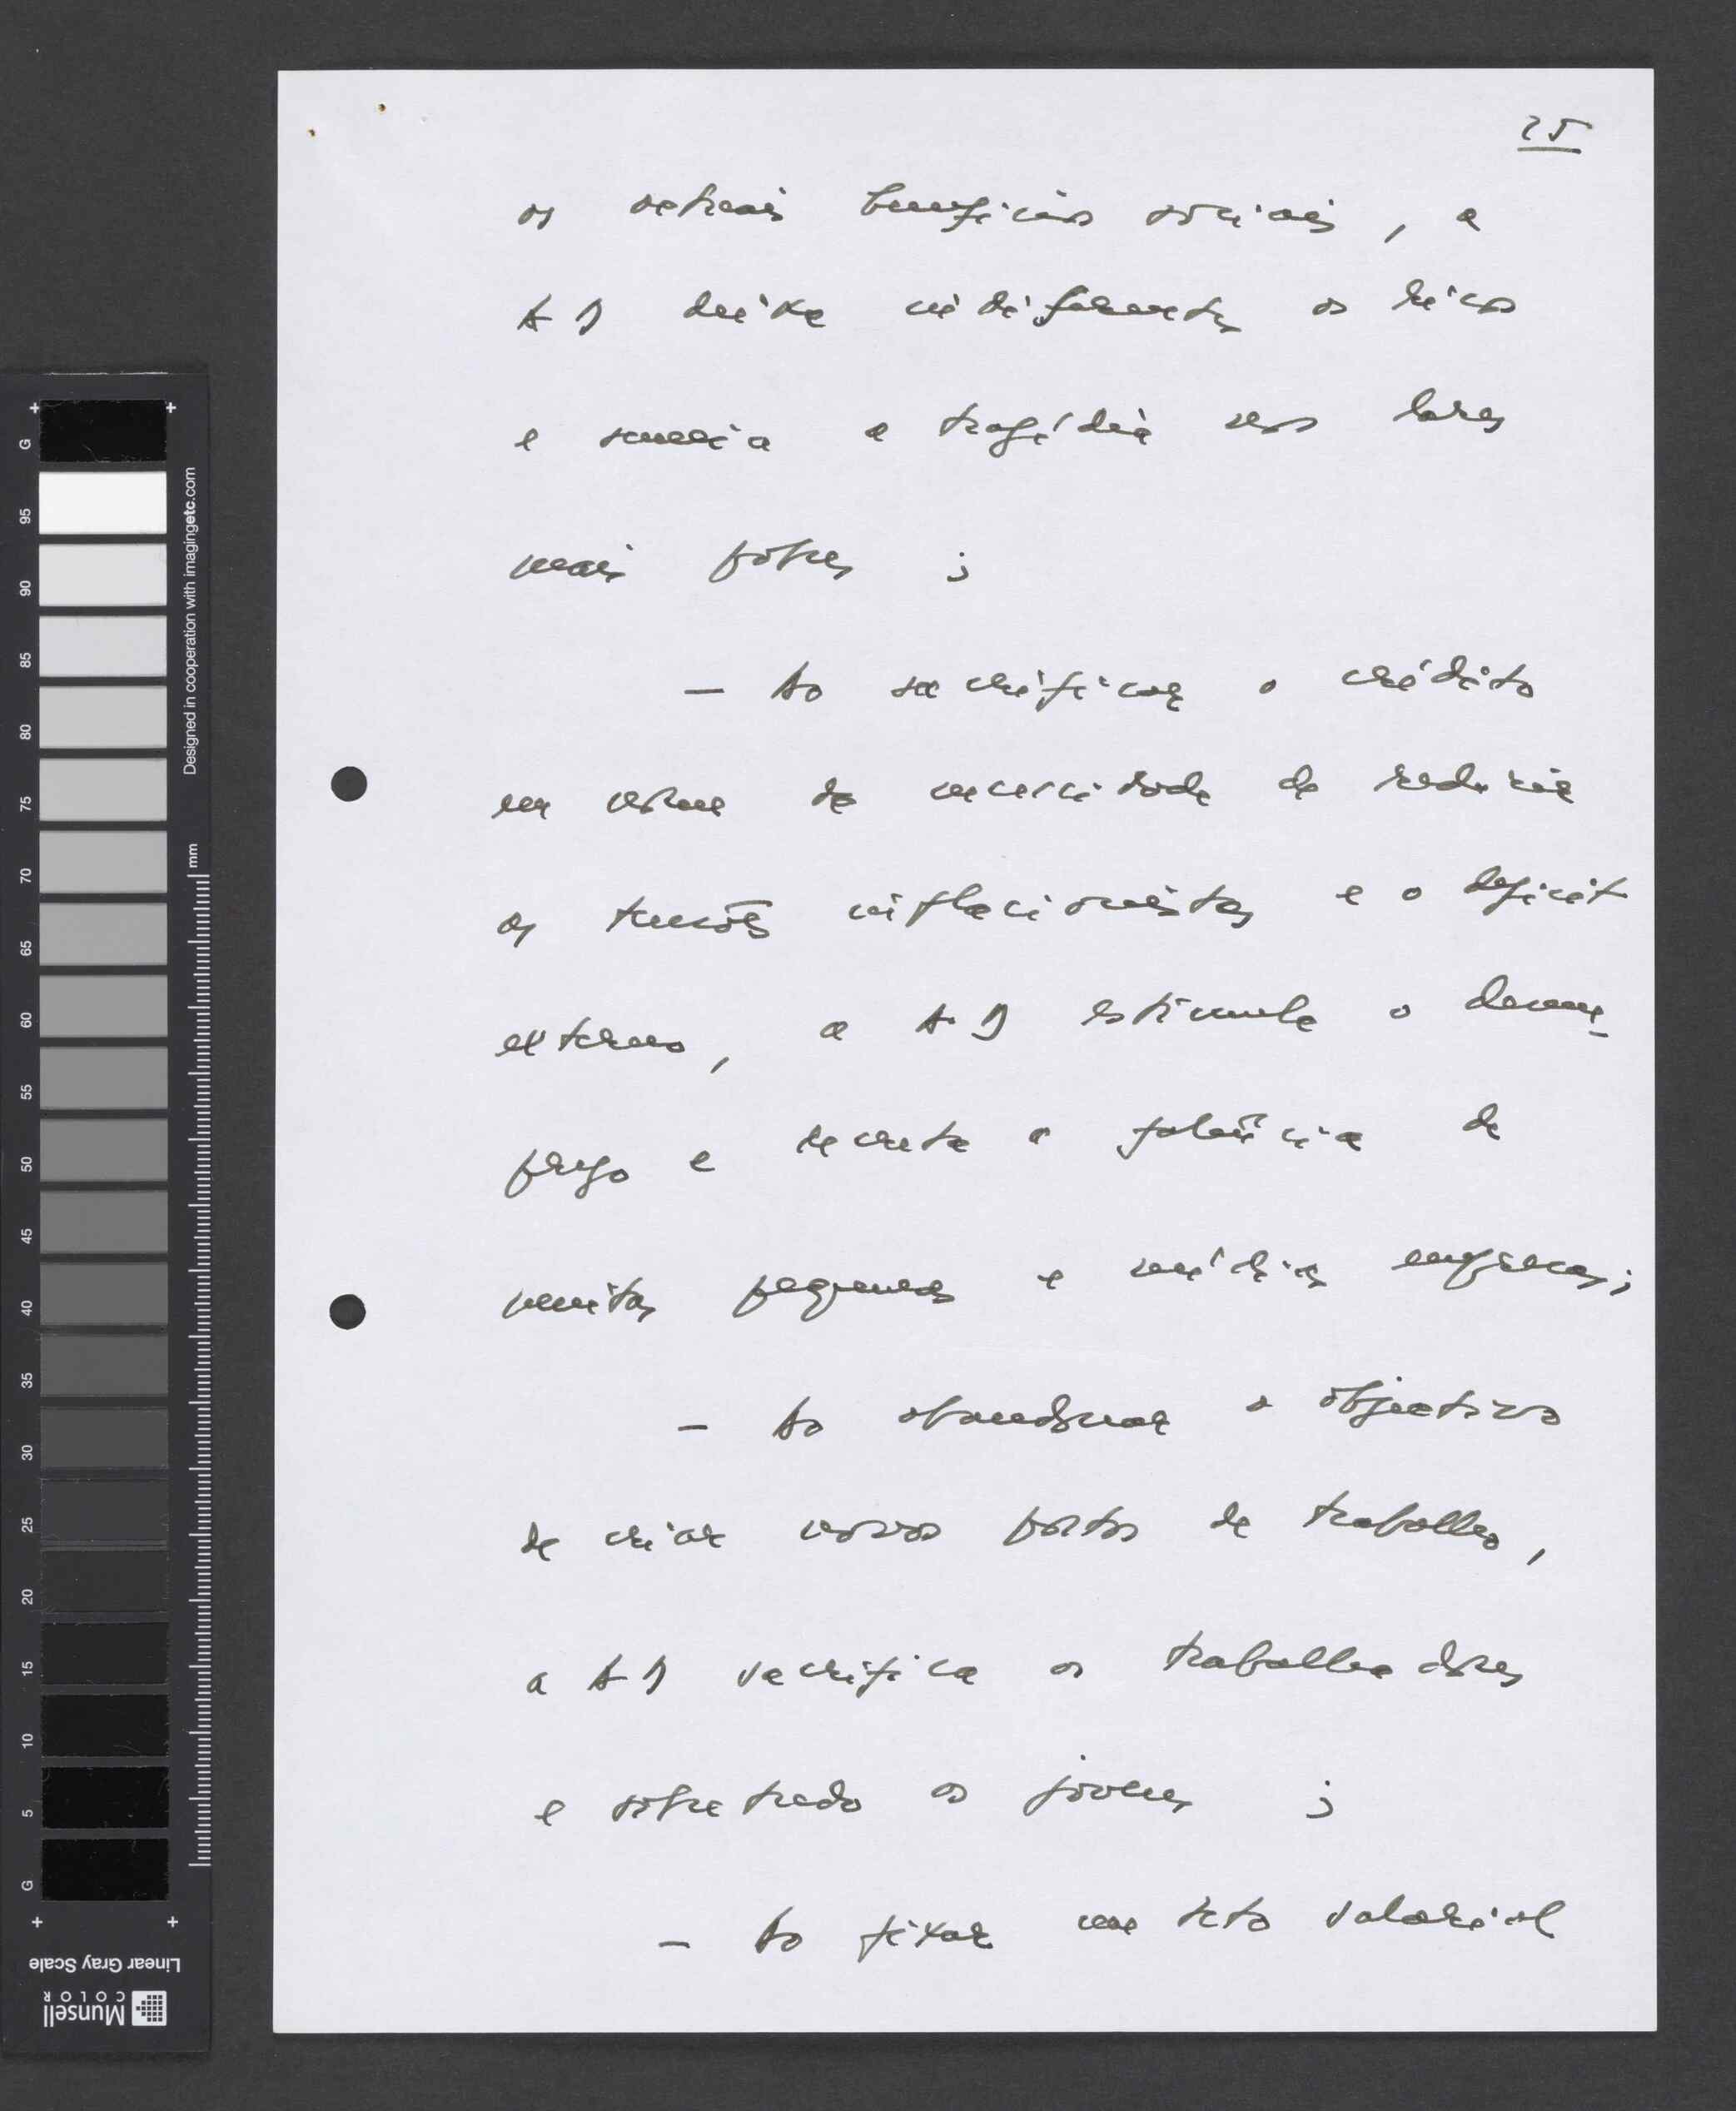 25
os actuais benefícios sociais, a
AD deixa indiferentes os ricos
e semeia a tragédia nos lares
mais pobres ;
— Ao sacrificar o crédito
em nome da necessidade de reduzir
as tensões inflacionistas e o deficit
externo, a AD estimula o desem-
prego e decreta a falência de
muitas pequenas e médias empresas;
— Ao abandonar o objectivo
de criar novos postos de trabalho,
a AD sacrifica os trabalhadores
e sobretudo os jovens ;
— Ao fixar um teto salarial
G
95
90
85
80
75
70
65
60
55
50
45
40
35
30
25
20
15
10
5
G
Designed in cooperation with imagingetc.com
mm
Linear Gray Scale
Munsell
COLOR